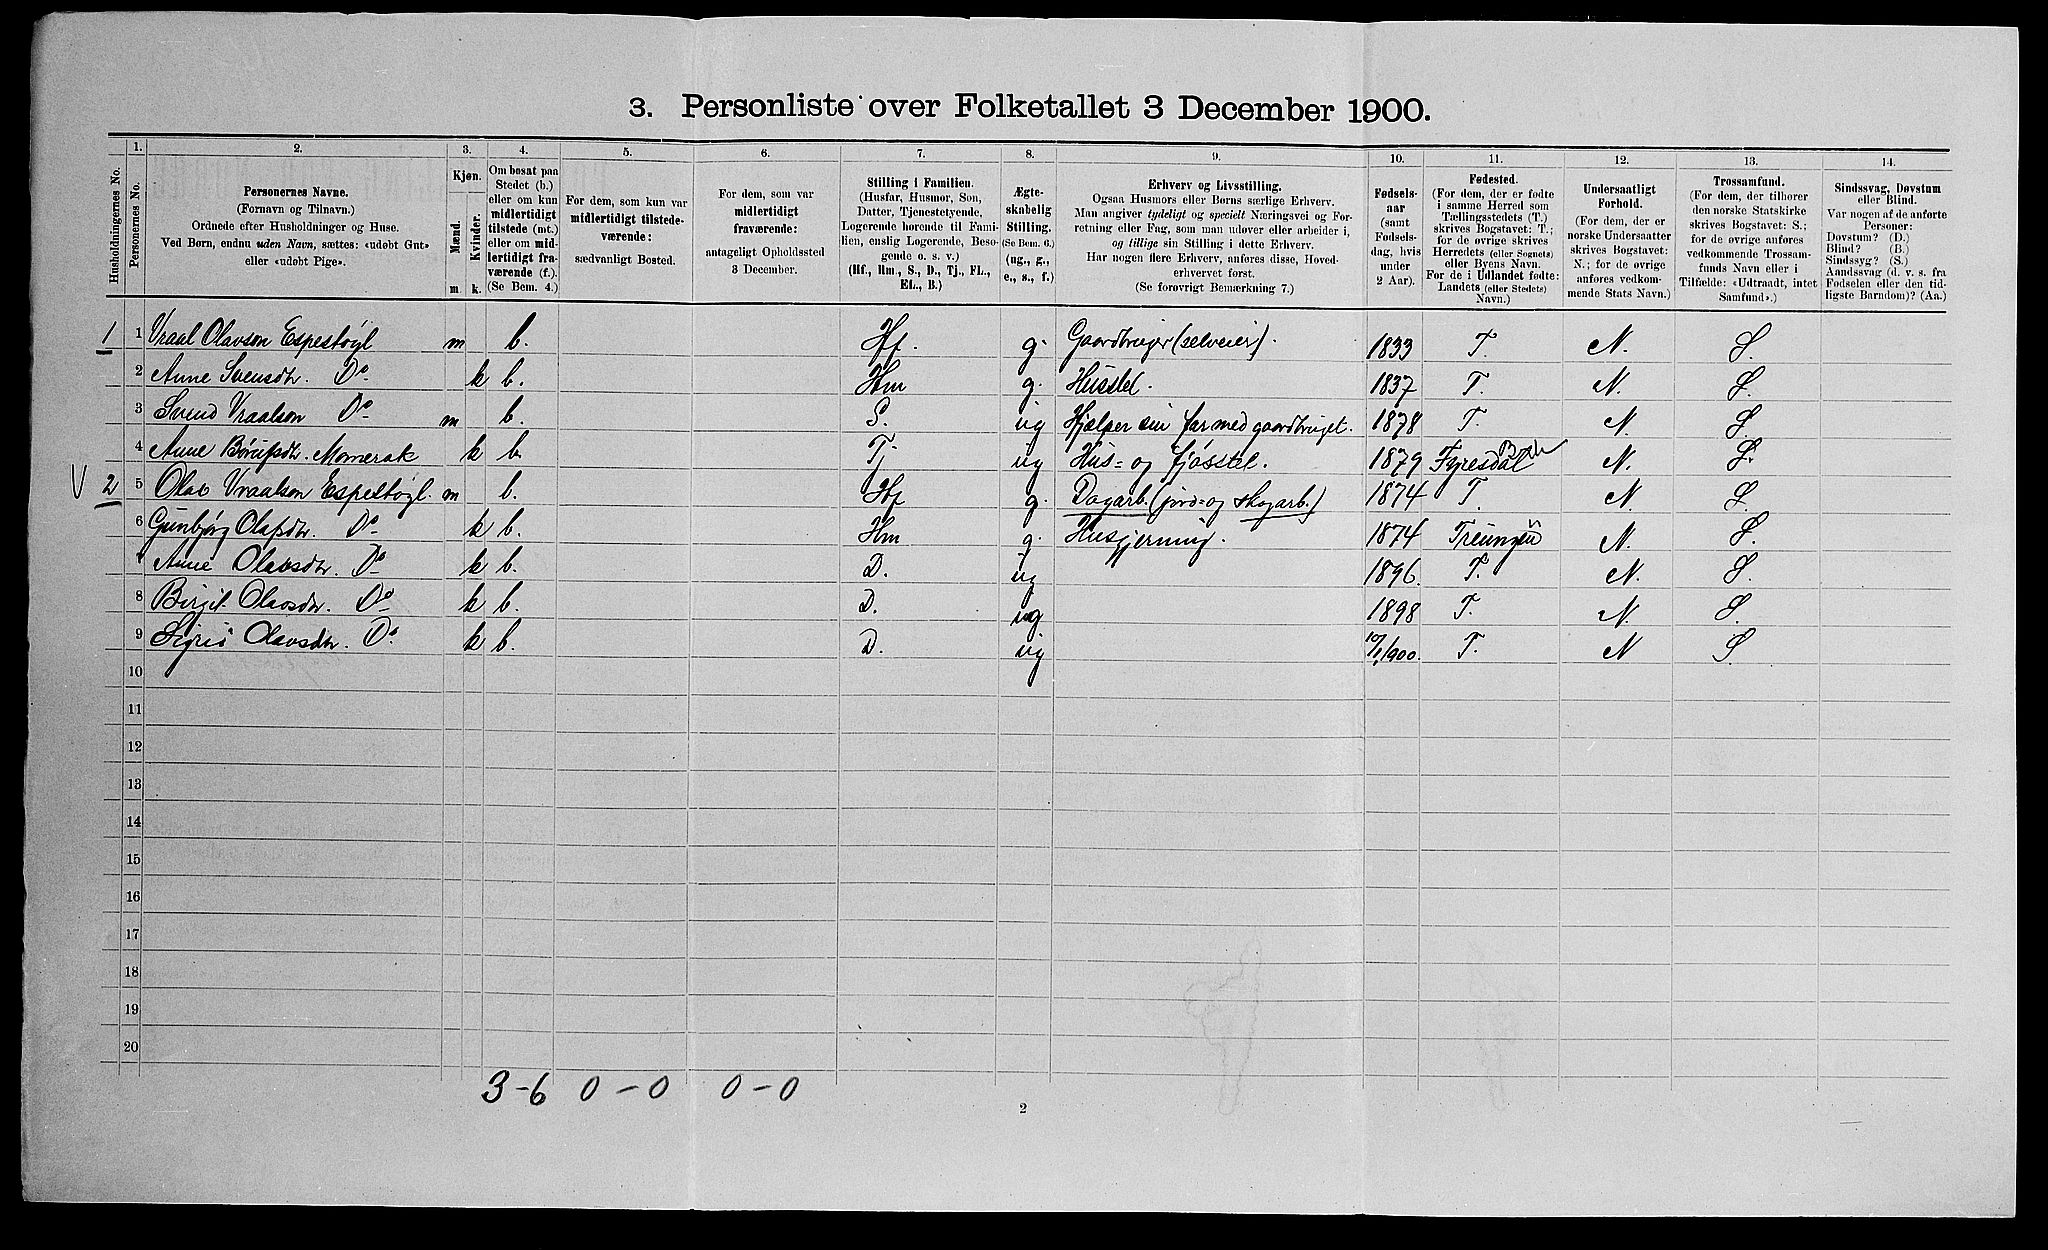 3. Personliste over Folketallet 3 December 1900.
1. 2. 3. 4. 5. 6. 7. 8. 9. 10. 11. 12. 13. 14.
Husholdningernes No.
Personernes No.
Personernes Navne.
(Fornavn og Tilnavn.)
Ordnede efter Husholdninger og Huse.
Ved Børn, endnu uden Navn, sættes: «udøbt Gut»
eller «udøbt Pige».
Kjøn.
Mænd.
Kvinder.
m. k.
Om bosat paa
Stedet (b.)
eller om kun
midlertidigt
tilstede (mt.)
eller om mid-
lertidigt fra-
værende (f.).
(Se Bem. 4.)
For dem, som kun var
midlertidigt tilstede-
værende:
sædvanligt Bosted.
For dem, som var
midlertidigt
fraværende:
antageligt Opholdssted
3 December.
Stilling i Familien.
(Husfar, Husmor, Søn,
Datter, Tjenestetyende,
Logerende hørende til Fami-
lien, enslig Logerende, Besø-
gende o. s. v.)
(Hf., Hm., S., D., Tj., FL.,
EL., B.)
Ægte-
skabelig
Stilling.
(Se Bem. 6.)
(ug., g.,
e., s., f.)
Erhverv og Livsstilling.
Ogsaa Husmors eller Børns særlige Erhverv.
Man angiver tydeligt og specielt Næringsvei og For-
retning eller Fag, som man udøver eller arbeider i,
og tillige sin Stilling i dette Erhverv.
Har nogen flere Erhverv, anføres disse, Hoved-
erhvervet først.
(Se forøvrigt Bemærkning 7.)
Fødsels-
aar
(samt
Fødsels-
dag, hvis
under
2 Aar).
Fødested.
(For dem, der er fødte
i samme Herred som
Tællingsstedets (T.)
skrives Bogstavet: T.;
for de øvrige skrives
Herredets (eller Sognets)
eller Byens Navn.
For de i Udlandet fødte:
Landets (eller Stedets)
Navn.)
Undersaatligt
Forhold.
(For dem, der er
norske Undersaatter
skrives Bogstavet:
N.; for de øvrige
anføres vedkom-
mende Stats Navn.)
Trossamfund.
(For dem, der tilhører
den norske Statskirke
skrives Bogstavet: S.;
for de øvrige anføres
vedkommende Trossam-
funds Navn eller i
Tilfælde: «Udtraadt, intet
Samfund».)
Sindssvag, Døvstum
eller Blind.
Var nogen af de anførte
Personer:
Døvstum? (D.)
Blind? (B.)
Sindssyg? (S.)
Aandssvag (d. v. s. fra
Fødselen eller den tid-
ligste Barndom)? (Aa.)
1 1 Vraal Olavson Espestøgl m b. Hf. g. Gaardbruger (selveier). 1833 T. N. S.
2 Anne Svensdtr. Do k b. Hm g. Husstel. 1837 T. N. S.
3 Svend Vraalson Do m b. S. ug Hjælper sin far med gaardbruget. 1878 T. N. S
4 Anne Børufsdtr. Momerak k b. Tj ug Hus- og fjøsstel. 1879 Fyresdal N. S.
V 2 5 Olav Vraalson Espestøgl. m b. Hf g. Dagarb. (jord- og skogarb.) 1874 T. N. S.
6 Gunbjørg Olafsdtr. Do k b. Hm g. Husgjerning. 1874 Treungen N. S.
7 Anne Olavsdtr. Do k b. D. ug 1896. T. N. S.
8 Birgit Olavsdtr. Do k b. D. ug 1898 T. N. S.
9 Sigrid Olavsdtr. Do. k b. D. ug 10/1 1900. T. N S
10
11
12
13
14
15
16
17
18
19
20
3-6 0-0 0-0
2